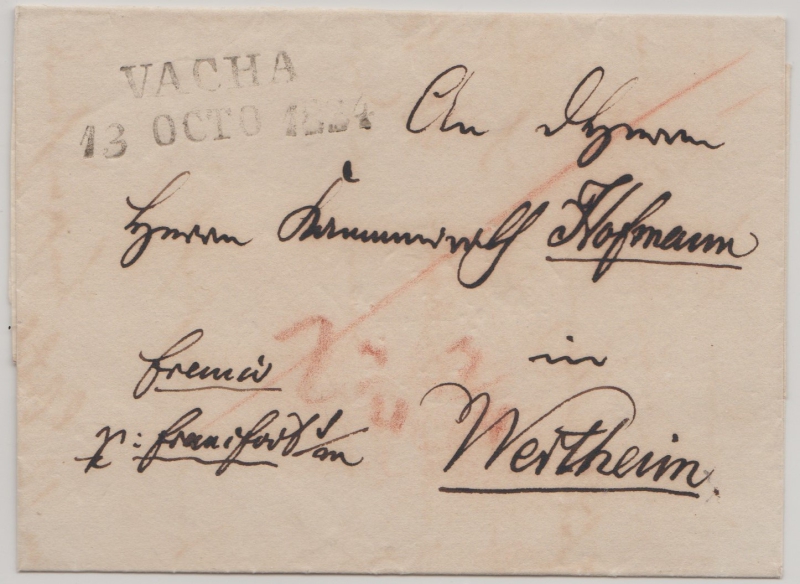 VACHA
13 OCTO 1824
An
Herrn Kammerrath Hofmann
in
franco
p: Francfort a/m
Wertheim